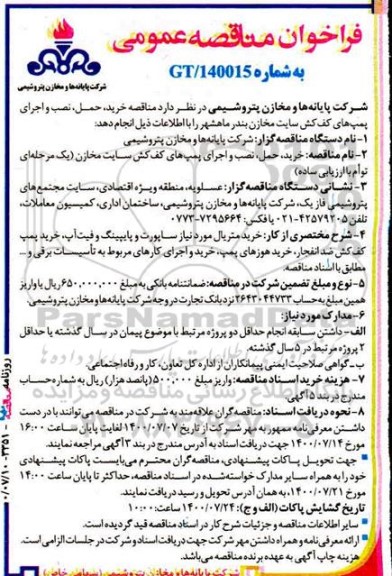 فراخوان مناقصه عمومی
به شماره GT/140015
شرکت پایانه‌ها و مخازن پتروشیمی
شرکت پایانه‌ها و مخازن پتروشیمی در نظر دارد مناقصه خرید، حمل، نصب و اجرای
پمپ‌های کف‌کش سایت مخازن بندر ماهشهر را با اطلاعات ذیل انجام دهد:
۱- نام دستگاه مناقصه گزار: شرکت پایانه‌ها و مخازن پتروشیمی
۲- نام مناقصه: خرید، حمل، نصب و اجرای پمپ‌های کف‌کش سایت مخازن (یک مرحله‌ای
توأم با ارزیابی ساده)
۳- نشانی دستگاه مناقصه‌گزار: عسلویه، منطقه ویژه اقتصادی، سایت مجتمع‌های
پتروشیمی فاز یک، شرکت پایانه‌ها و مخازن پتروشیمی، ساختمان اداری، کمیسیون معاملات،
تلفن ۴۲۵۷۹۲۰۵-۰۲۱ فاکس: ۷۲۹۵۶۶۴-۰۷۷۳
۴- شرح مختصری از کار: خرید متریال مورد نیاز ساپورت و پایپینگ و فیت‌آپ، خرید پمپ
کف‌کش ضد انفجار، خرید هوزهای پمپ، خرید و اجرای کارهای مربوط به تأسیسات برقی و ...
مطابق با اسناد مناقصه.
۵- نوع و مبلغ تضمین شرکت در مناقصه: ضمانتنامه بانکی به مبلغ ۶۵۰,۰۰۰,۰۰۰ ریال یا واریز
همین مبلغ به حساب ۲۶۴۳۰۴۴۷۳۳ نزد بانک تجارت در وجه شرکت پایانه‌ها و مخازن پتروشیمی
۶- مدارک مورد نیاز:
الف- داشتن سابقه انجام حداقل دو پروژه مرتبط با موضوع پیمان در سال گذشته یا حداقل
۲ پروژه مرتبط در ۵ سال گذشته
ب- گواهی صلاحیت ایمنی پیمانکاران از اداره کل تعاون، کار و رفاه اجتماعی.
۷- هزینه خرید اسناد مناقصه: واریز مبلغ ۵۰۰,۰۰۰ (پانصد هزار) ریال به شماره حساب
مندرج در بند ۵ آگهی
۸- نحوه دریافت اسناد: مناقصه‌گران علاقه‌مند به شرکت در مناقصه می‌توانند با در دست
داشتن معرفی‌نامه ممهور به مهر شرکت از تاریخ ۱۴۰۰/۰۷/۰۷ لغایت پایان ساعت ۱۶:۰۰
مورخ ۱۴۰۰/۰۷/۱۴ جهت دریافت اسناد به آدرس مندرج در بند ۳ آگهی مراجعه نمایند.
جهت تحویل پاکات پیشنهادی، مناقصه‌گران محترم می‌بایست پاکات پیشنهادی
خود را به همراه سایر مدارک خواسته‌شده در اسناد مناقصه، حداکثر تا پایان ساعت ۱۴:۰۰
مورخ ۱۴۰۰/۰۷/۲۱، به همان آدرس تحویل و رسید دریافت نمایند.
تاریخ گشایش پاکات (الف و ج): ۱۴۰۰/۰۷/۲۴ ساعت: ۱۰:۰۰
سایر اطلاعات مناقصه و جزئیات شرح کار در اسناد مناقصه قید گردیده است.
ارائه معرفی‌نامه و همراه داشتن مهر شرکت جهت دریافت اسناد و شرکت در جلسات الزامی است.
هزینه چاپ آگهی به عهده برنده مناقصه می‌باشد.
شرکت پایانه‌ها و مخازن پتروشیمی (سهامی خاص)